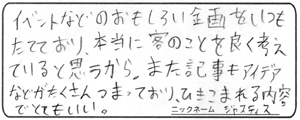 イベントなどのおもしろい企画をいつも
たてており、本当に客のことを良く考え
ていると思うから。また記事もアイデア
などがたくさんつまっており、ひきこまれる内容
でとてもいい。 ニックネーム ジャスティス